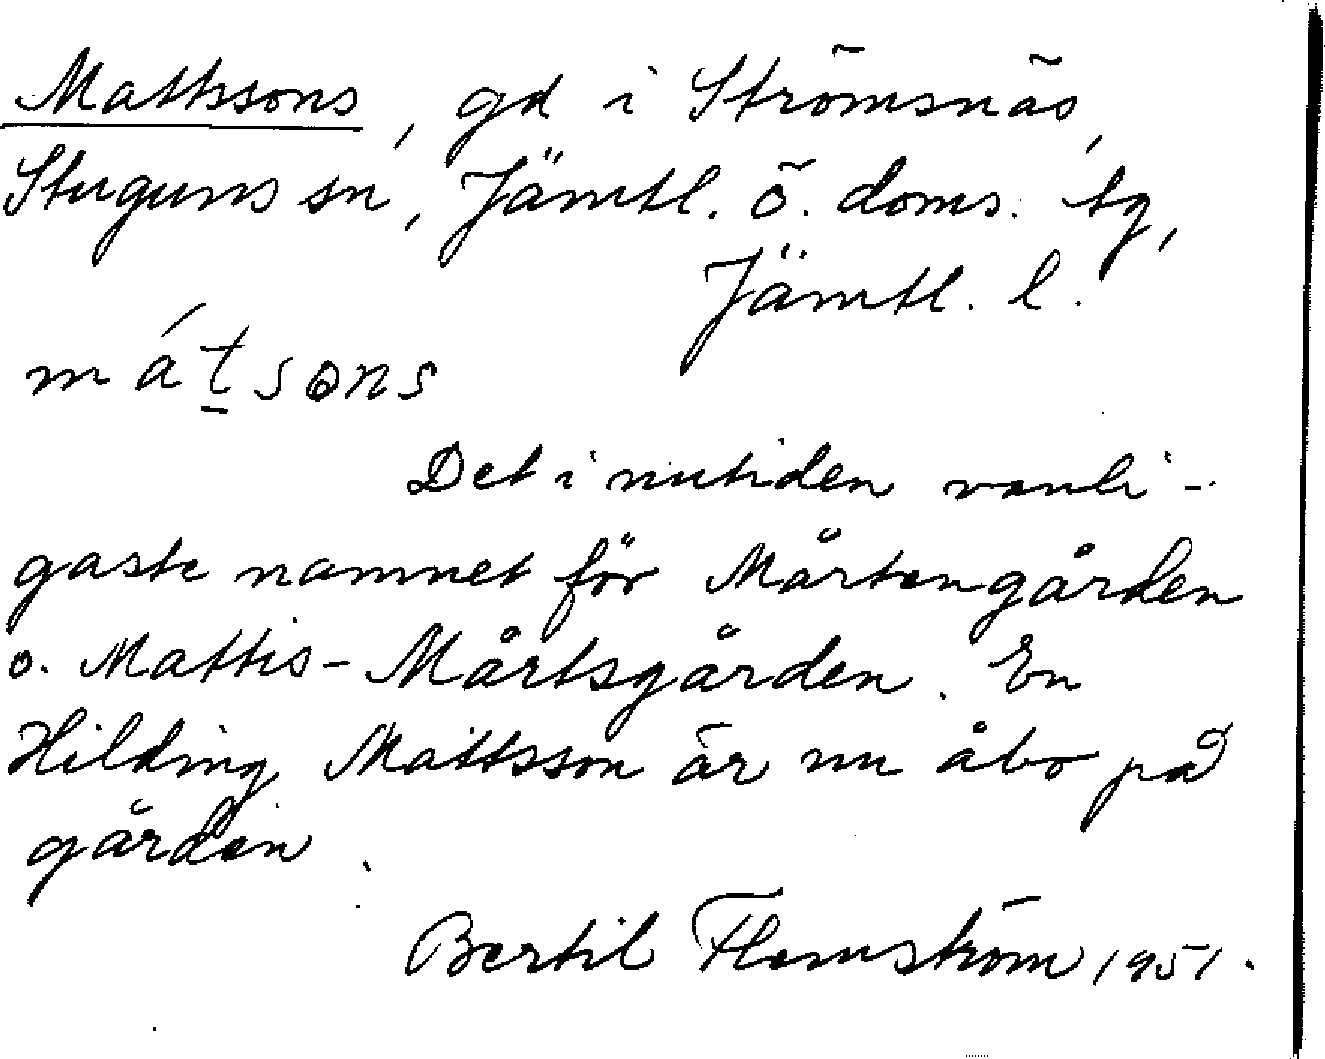 Mattsons, gd i Strömsnäs,
Stuguns sn, Jämtl. ö. doms. tg,
Jämtl. l.
mát̠sons
Det i nutiden vanli-
gaste namnet för Mårtengården
o. Mattis-Mårtsgården. En
Hilding Mattsson är nu åbo på
gården.
Bertil Flemström 1951.